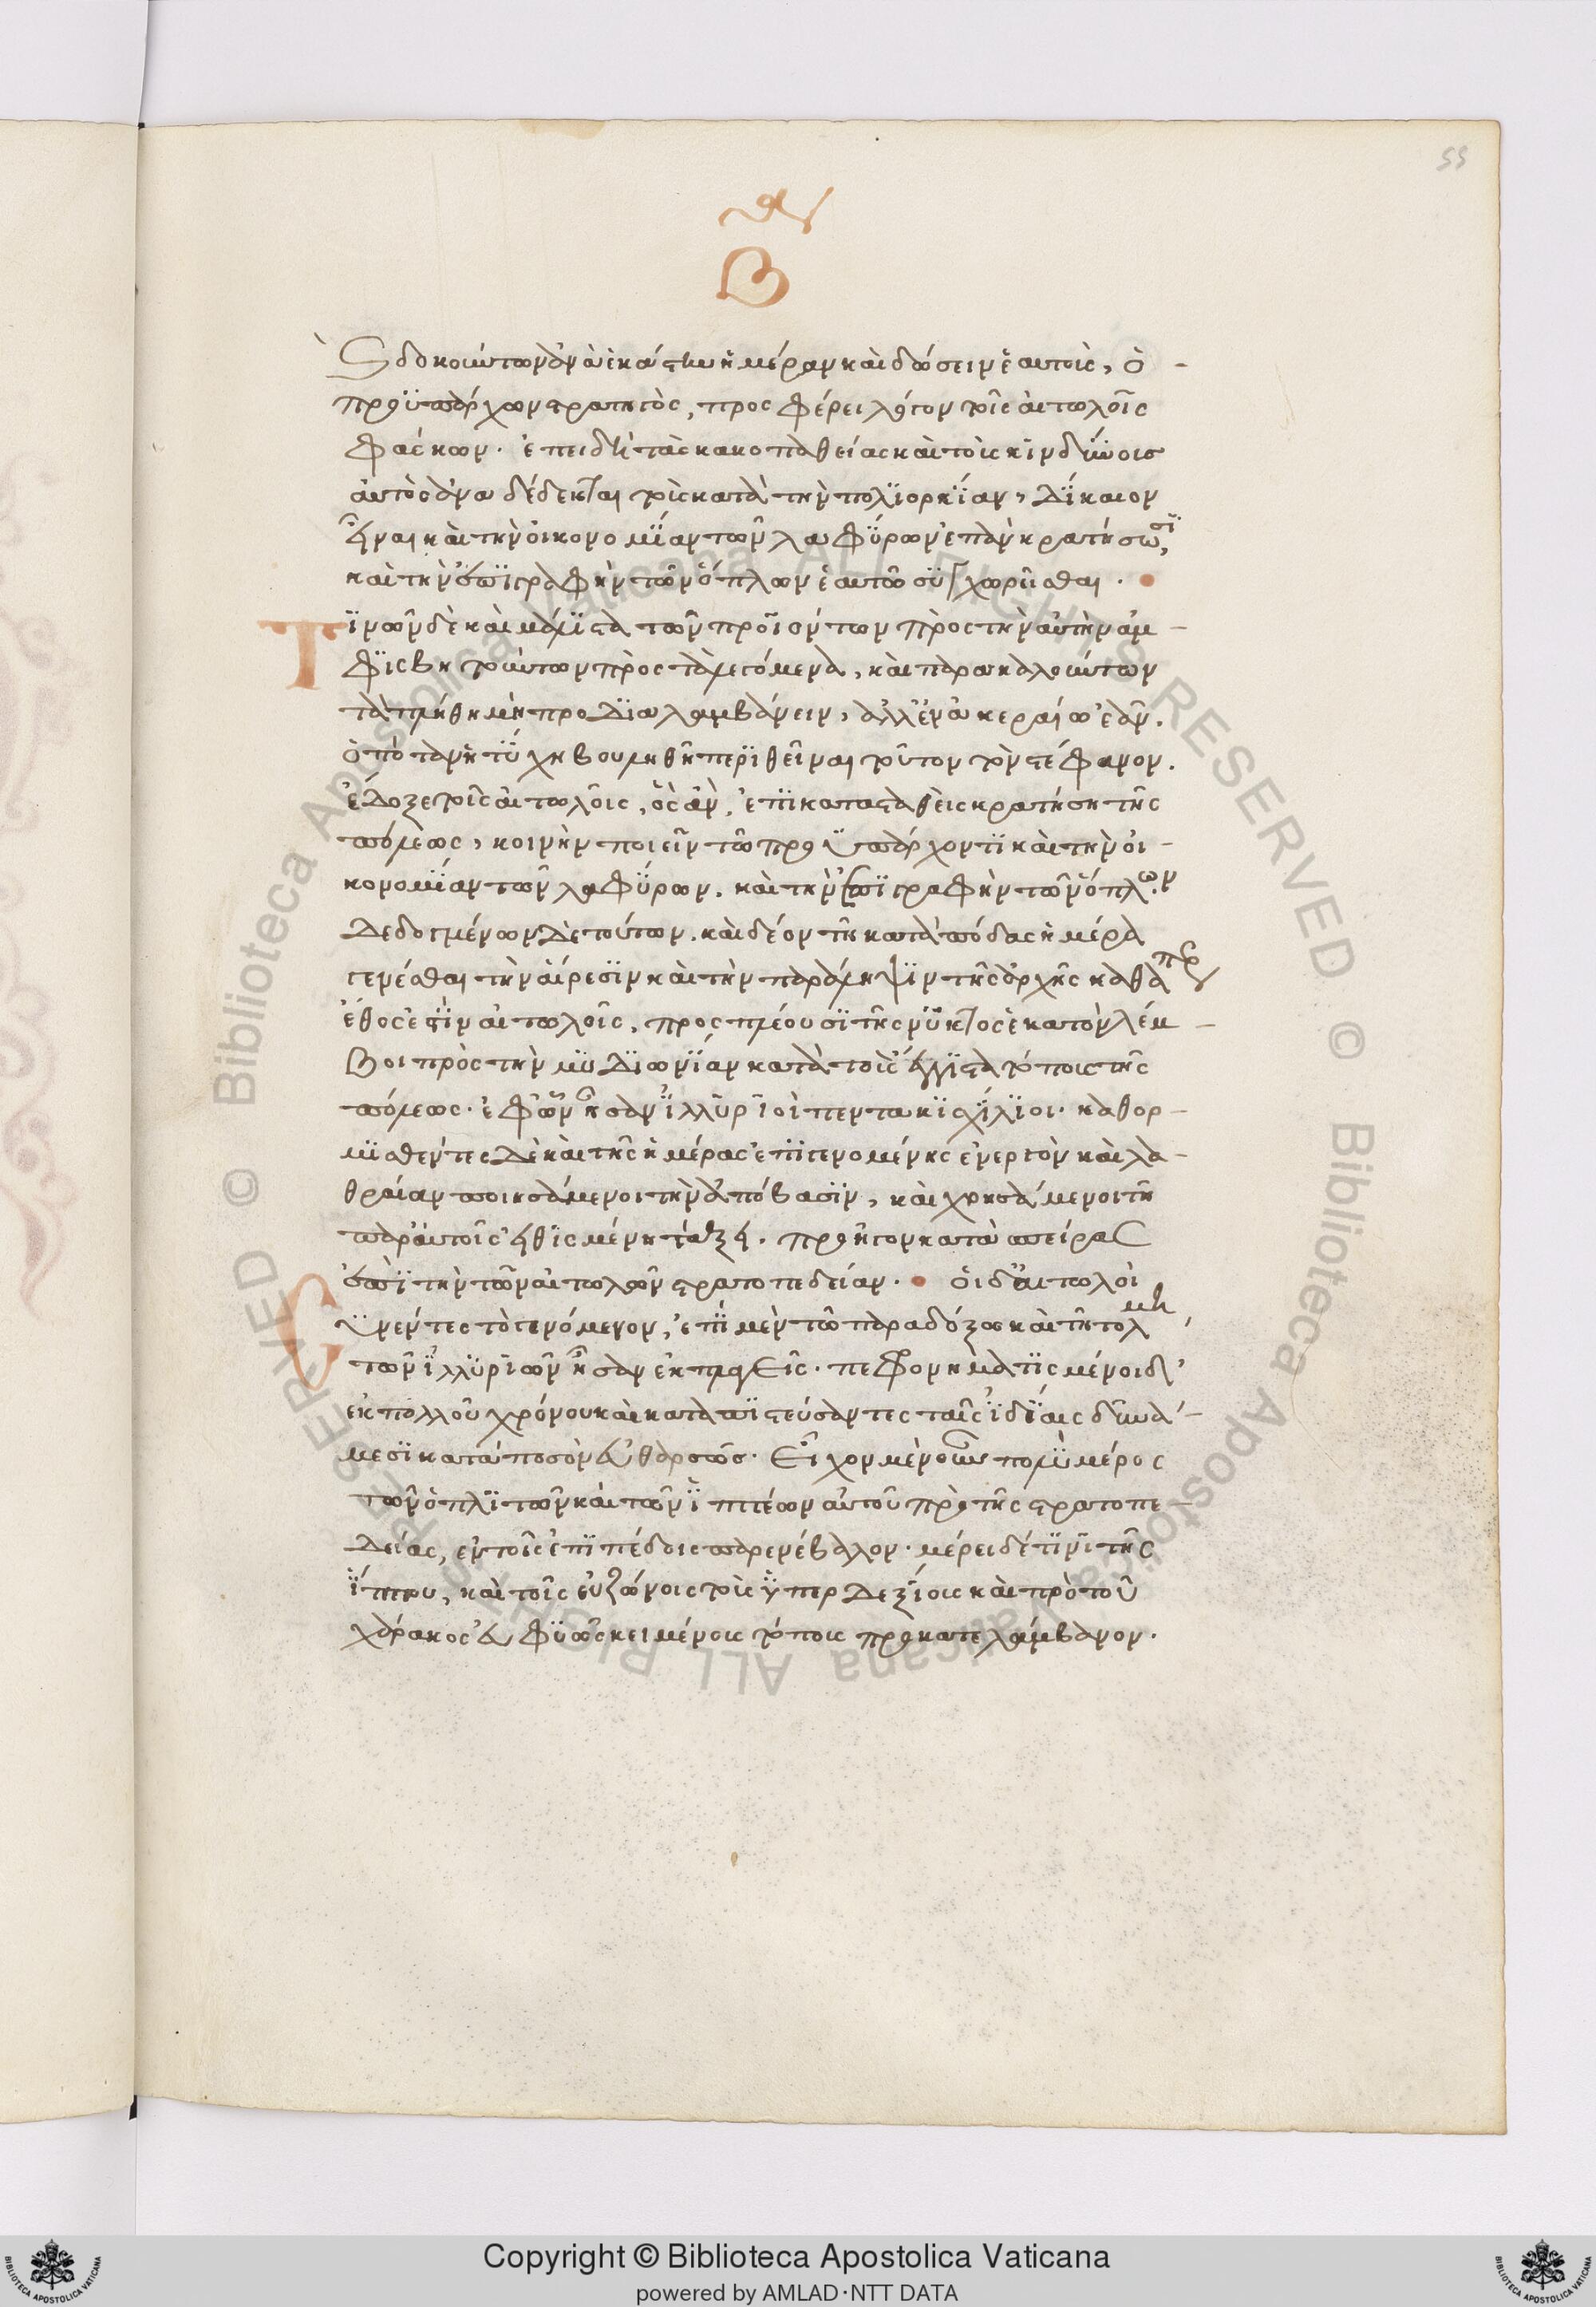 55
Β
δοκούντων ἀνὰ ἑκάστην ἡμέραν καὶ δώσειν ἑαυτοὺς, ὁ
προϋπάρχων στρατηγὸς, προσφέρει λόγον τοῖς αἰτωλοῖς
φάσκων. ἐπειδὴ τὰς κακοπαθείας καὶ τοὺς κινδύνους
αὐτὸς ἀναδέδεκται τοὺς κατὰ τὴν πολϊορκΐαν, δΐκαιον
εἶναι καὶ τὴν οἰκονομΐαν τῶν λαφύρων ἐπὰν κρατήσωσϊ,
καὶ τὴν ἐπϊγραφὴν τῶν ὅπλων ἑαυτῶ συγχωρεῖσθαι.
Τϊνῶν δὲ καὶ μάλιστα τῶν προϊόντων πρὸς τὴν αὐτὴν ἀμ-
φϊσβητούντων πρὸς τὰ λεγόμενα, καὶ παρακαλούντων
τὰ πλήθη μὴ προδϊαλαμβάνειν, ἀλλ' ἐν ἀκεραίω ἐᾶν.
ὁπόταν ἡ τύχη βουληθῆ περϊθεῖναι τοῦτον τὸν στέφανον.
ἔδοξε τοῖς αἰτωλοῖς, ὃς ἂν ἐπϊκαταστὰθεὶς κρατήση τῆς
πόλεως, κοινὴν ποιεῖν τῶ προϋπάρχοντϊ καὶ τὴν οἰ-
κονομΐαν τῶν λαφύρων. καὶ τὴν ἐπϊγραφὴν τῶν ὅπλων.
Δεδογμένων δὲ τούτων. καὶ δέον τῆ κατὰ πόδας ἡμέρα
γενέσθαι τὴν αἵρεσϊν καὶ τὴν παράληψϊν τῆς ἀρχῆς καθάπερ
ἔθος ἐστϊν αἰτωλοῖς, προσπλέουσϊ τῆς νυκτὸς ἑκατὸν λέμ-
βοι πρὸς τὴν μϋδϊωνΐαν κατὰ τοὺς ἔγγϊστα τόπους τῆς
πόλεως. ἐφ' ὧν ἦσαν ἰλλυρϊοὶ πεντακϊσχΐλϊοι. καθορ-
μϊσθέντες δὲ καὶ τῆς ἡμέρας ἐπϊγενομένης ἐνεργὸν καὶ λα-
θραίαν ποιησάμενοι τὴν ἀπόβασϊν, καὶ χρησάμενοι τῆ
παρ' αὐτοῖς εἰθϊσμένη τάξει. προῆγον κατὰ σπείρας
ἐπὶ τὴν τῶν αἰτωλῶν στρατοπεδείαν. οἱ δ' αἰτωλοὶ
Συνέντες τὸ γενόμενον, ἐπὶ μὲν τῶ παραδόξω καὶ τῆ τόλμη
τῶν ἰλλϋρϊῶν ἦσαν ἐκπλαγεῖς. πεφρονηματϊσμένοι δ'
ἐκ πολλοῦ χρόνου καὶ καταπϊστεύσαντες ταῖς ἰδΐαις δυνά-
μεσϊ κατὰ ποσὸν εὐθαρσῶς. εἶχον μὲν οὖν πολὺ μέρος
τῶν ὁπλϊτῶν καὶ τῶν ἱππέων αὐτοῦ πρὸ τῆς στρατοπε-
δείας, ἐν τοῖς ἐπϊπέδοις παρενέβαλον. μέρει δέ τϊνϊ τῆς
ἵππου, καὶ τοῖς εὐζώνοις τοὺς ὑπερδεξίους καὶ πρὸ τοῦ
χάρακος εὐφυῶς κειμένους τόπους προκατελάμβανον.
Copyright © Biblioteca Apostolica Vaticana
powered by AMLAD·NTT DATA